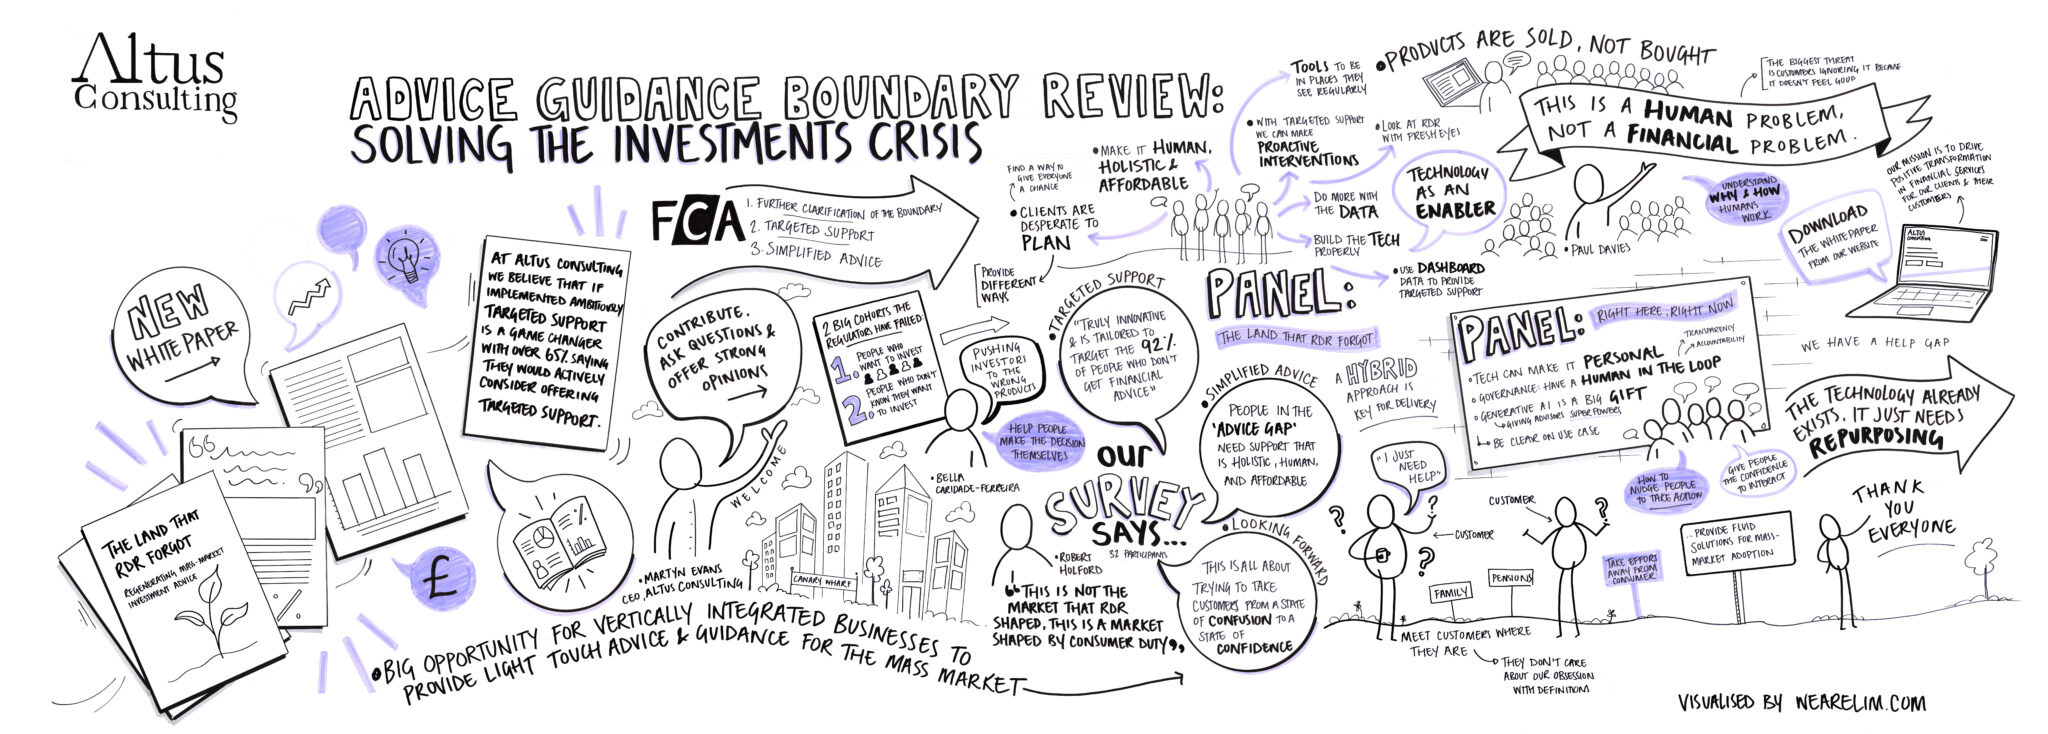 Altus
Consulting
ADVICE GUIDANCE BOUNDARY REVIEW:
SOLVING THE INVESTMENTS CRISIS
NEW
WHITE PAPER
THE LAND THAT
RDR FORGOT
REGENERATING MASS-MARKET
INVESTMENT ADVICE
£
%
AT ALTUS CONSULTING
WE BELIEVE THAT IF
IMPLEMENTED AMBITIOUSLY
TARGETED SUPPORT
IS A GAME CHANGER
WITH OVER 65% SAYING
THEY WOULD ACTIVELY
CONSIDER OFFERING
TARGETED SUPPORT.
%
FCA
1. FURTHER CLARIFICATION OF THE BOUNDARY
2. TARGETED SUPPORT
3. SIMPLIFIED ADVICE
CONTRIBUTE,
ASK QUESTIONS &
OFFER STRONG
OPINIONS
WELCOME
• MARTYN EVANS
CEO, ALTUS CONSULTING
• BIG OPPORTUNITY FOR VERTICALLY INTEGRATED BUSINESSES TO
PROVIDE LIGHT TOUCH ADVICE & GUIDANCE FOR THE MASS MARKET
2 BIG COHORTS THE
REGULATORS HAVE FAILED:
1. PEOPLE WHO
WANT TO INVEST
2 PEOPLE WHO DON'T
KNOW THEY WANT
TO INVEST
PUSHING
INVESTORI
TO THE
WRONG
PRODUCTS
HELP PEOPLE
MAKE THE DECISION
THEMSELVES
• BELLA
CARIDADE-FERREIRA
CANARY WHARF
• ROBERT
HOLFORD
"THIS IS NOT THE
MARKET THAT RDR
SHAPED, THIS IS A MARKET
SHAPED BY CONSUMER DUTY"
OUR
SURVEY
SAYS...
32 PARTICIPANTS
• TARGETED SUPPORT
"TRULY INNOVATIVE
& IS TAILORED TO
TARGET THE 92%
OF PEOPLE WHO DON'T
GET FINANCIAL
ADVICE"
• SIMPLIFIED ADVICE
PEOPLE IN THE
'ADVICE GAP'
NEED SUPPORT THAT
IS HOLISTIC, HUMAN,
AND AFFORDABLE
• LOOKING FORWARD
THIS IS ALL ABOUT
TRYING TO TAKE
CUSTOMERS FROM A STATE
OF CONFUSION TO A
STATE OF
CONFIDENCE
FIND A WAY TO
GIVE EVERYONE
A CHANCE
• CLIENTS ARE
DESPERATE TO
PLAN
PROVIDE
DIFFERENT
WAYS
• MAKE IT HUMAN,
HOLISTIC &
AFFORDABLE
TOOLS TO BE
IN PLACES THEY
SEE REGULARLY
• WITH TARGETED SUPPORT
WE CAN MAKE
PROACTIVE
INTERVENTIONS
• LOOK AT RDR
WITH FRESH EYES
DO MORE WITH
THE DATA
BUILD THE TECH
PROPERLY
• USE DASHBOARD
DATA TO PROVIDE
TARGETED SUPPORT
TECHNOLOGY
AS AN
ENABLER
PANEL:
THE LAND THAT RDR FORGOT
A HYBRID
APPROACH IS
KEY FOR DELIVERY
• PRODUCTS ARE SOLD, NOT BOUGHT
THE BIGGEST THREAT
IS CUSTOMERS IGNORING IT BECAUSE
IT DOESN'T FEEL GOOD
THIS IS A HUMAN PROBLEM,
NOT A FINANCIAL PROBLEM.
• PAUL DAVIES
UNDERSTAND
WHY & HOW
HUMANS
WORK
OUR MISSION IS TO DRIVE
POSITIVE TRANSFORMATION
IN FINANCIAL SERVICES
FOR OUR CLIENTS & THEIR
CUSTOMERS
DOWNLOAD
THE WHITE PAPER
FROM OUR WEBSITE
ALTUS
CONSULTING
PANEL:
RIGHT HERE, RIGHT NOW
TRANSPARENCY
ACCOUNTABILITY
• TECH CAN MAKE IT PERSONAL
• GOVERNANCE: HAVE A HUMAN IN THE LOOP
• GENERATIVE AI IS A BIG GIFT
GIVING ADVISORS SUPER POWERS
BE CLEAR ON USE CASE
HOW TO
NUDGE PEOPLE
TO TAKE ACTION
GIVE PEOPLE
THE CONFIDENCE
TO INTERACT
WE HAVE A HELP GAP
THE TECHNOLOGY ALREADY
EXISTS. IT JUST NEEDS
REPURPOSING
"I JUST
NEED
HELP"
?
?
?
CUSTOMER
CUSTOMER
?
FAMILY
PENSIONS
MEET CUSTOMERS WHERE
THEY ARE
THEY DON'T CARE
ABOUT OUR OBSESSION
WITH DEFINITION
TAKE EFFORT
AWAY FROM
CONSUMER
...PROVIDE FLUID
SOLUTIONS FOR MASS-
MARKET ADOPTION
THANK
YOU
EVERYONE
VISUALISED BY WEARELIM.COM